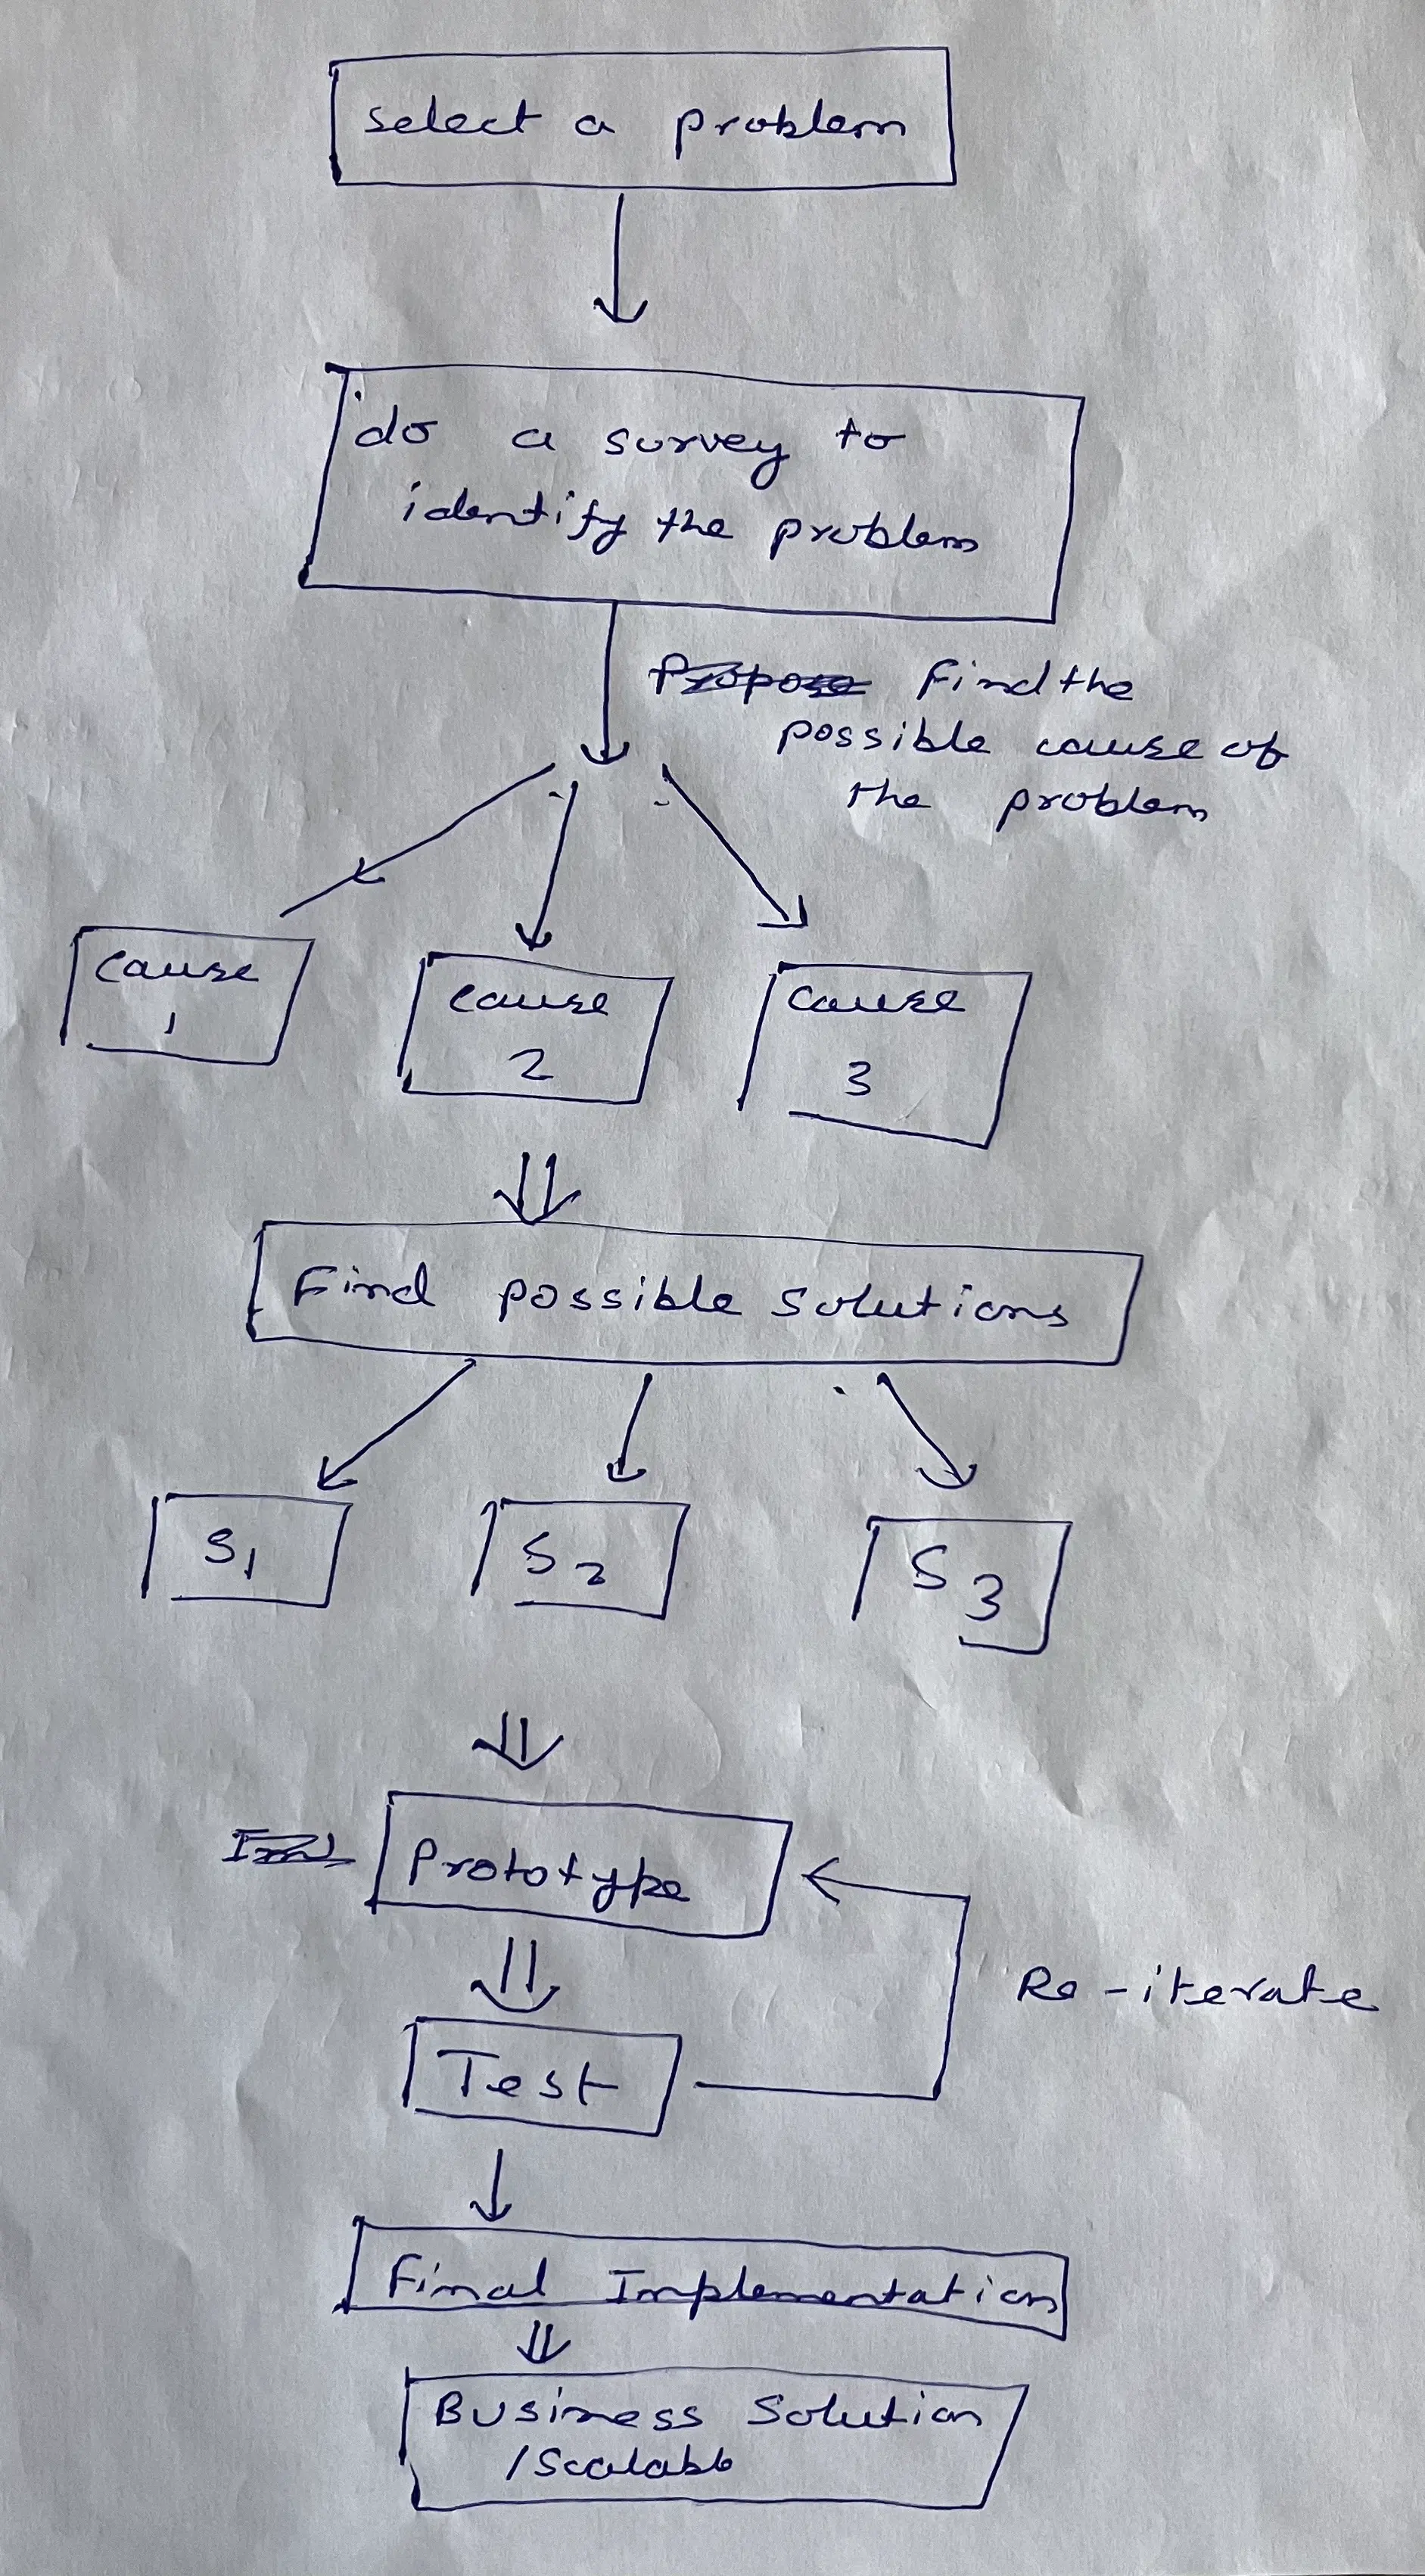 select a problem
do a survey to
identify the problem
Propose Find the
possible cause of
the problem
cause
1
cause
2
cause
3
Find possible solutions
S1
S2
S3
Prototype
Re-iterate
Test
Final Implementation
Business Solution
/Scalable